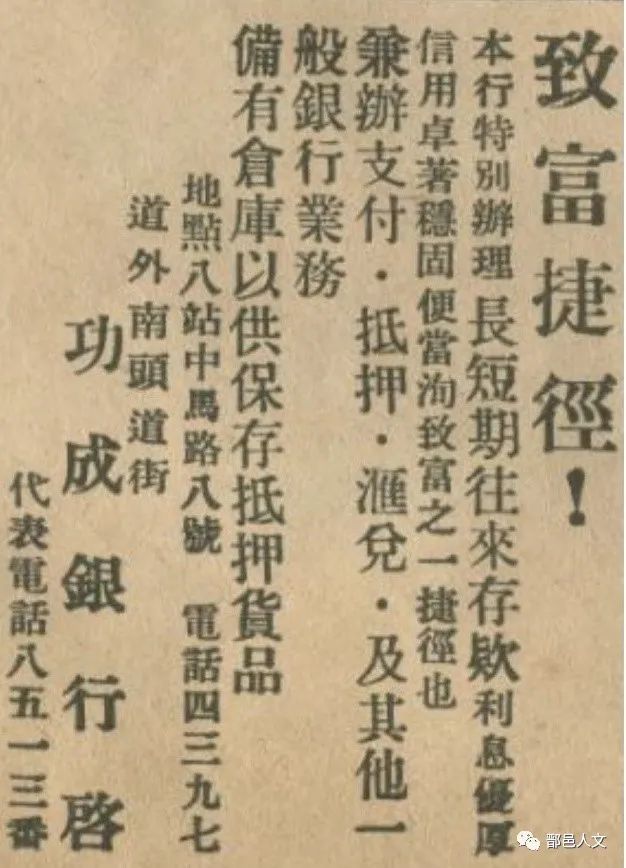 致富捷徑！
本行特別辦理長短期往來存欵利息優厚
信用卓著穩固便當洵致富之一捷徑也
兼辦支付·抵押·滙兌·及其他一
般銀行業務
備有倉庫以供保存抵押貨品
地點八站中馬路八號　電話四三九七
道外南頭道街
功成銀行啓
代表電話八五一三番
鄑邑人文